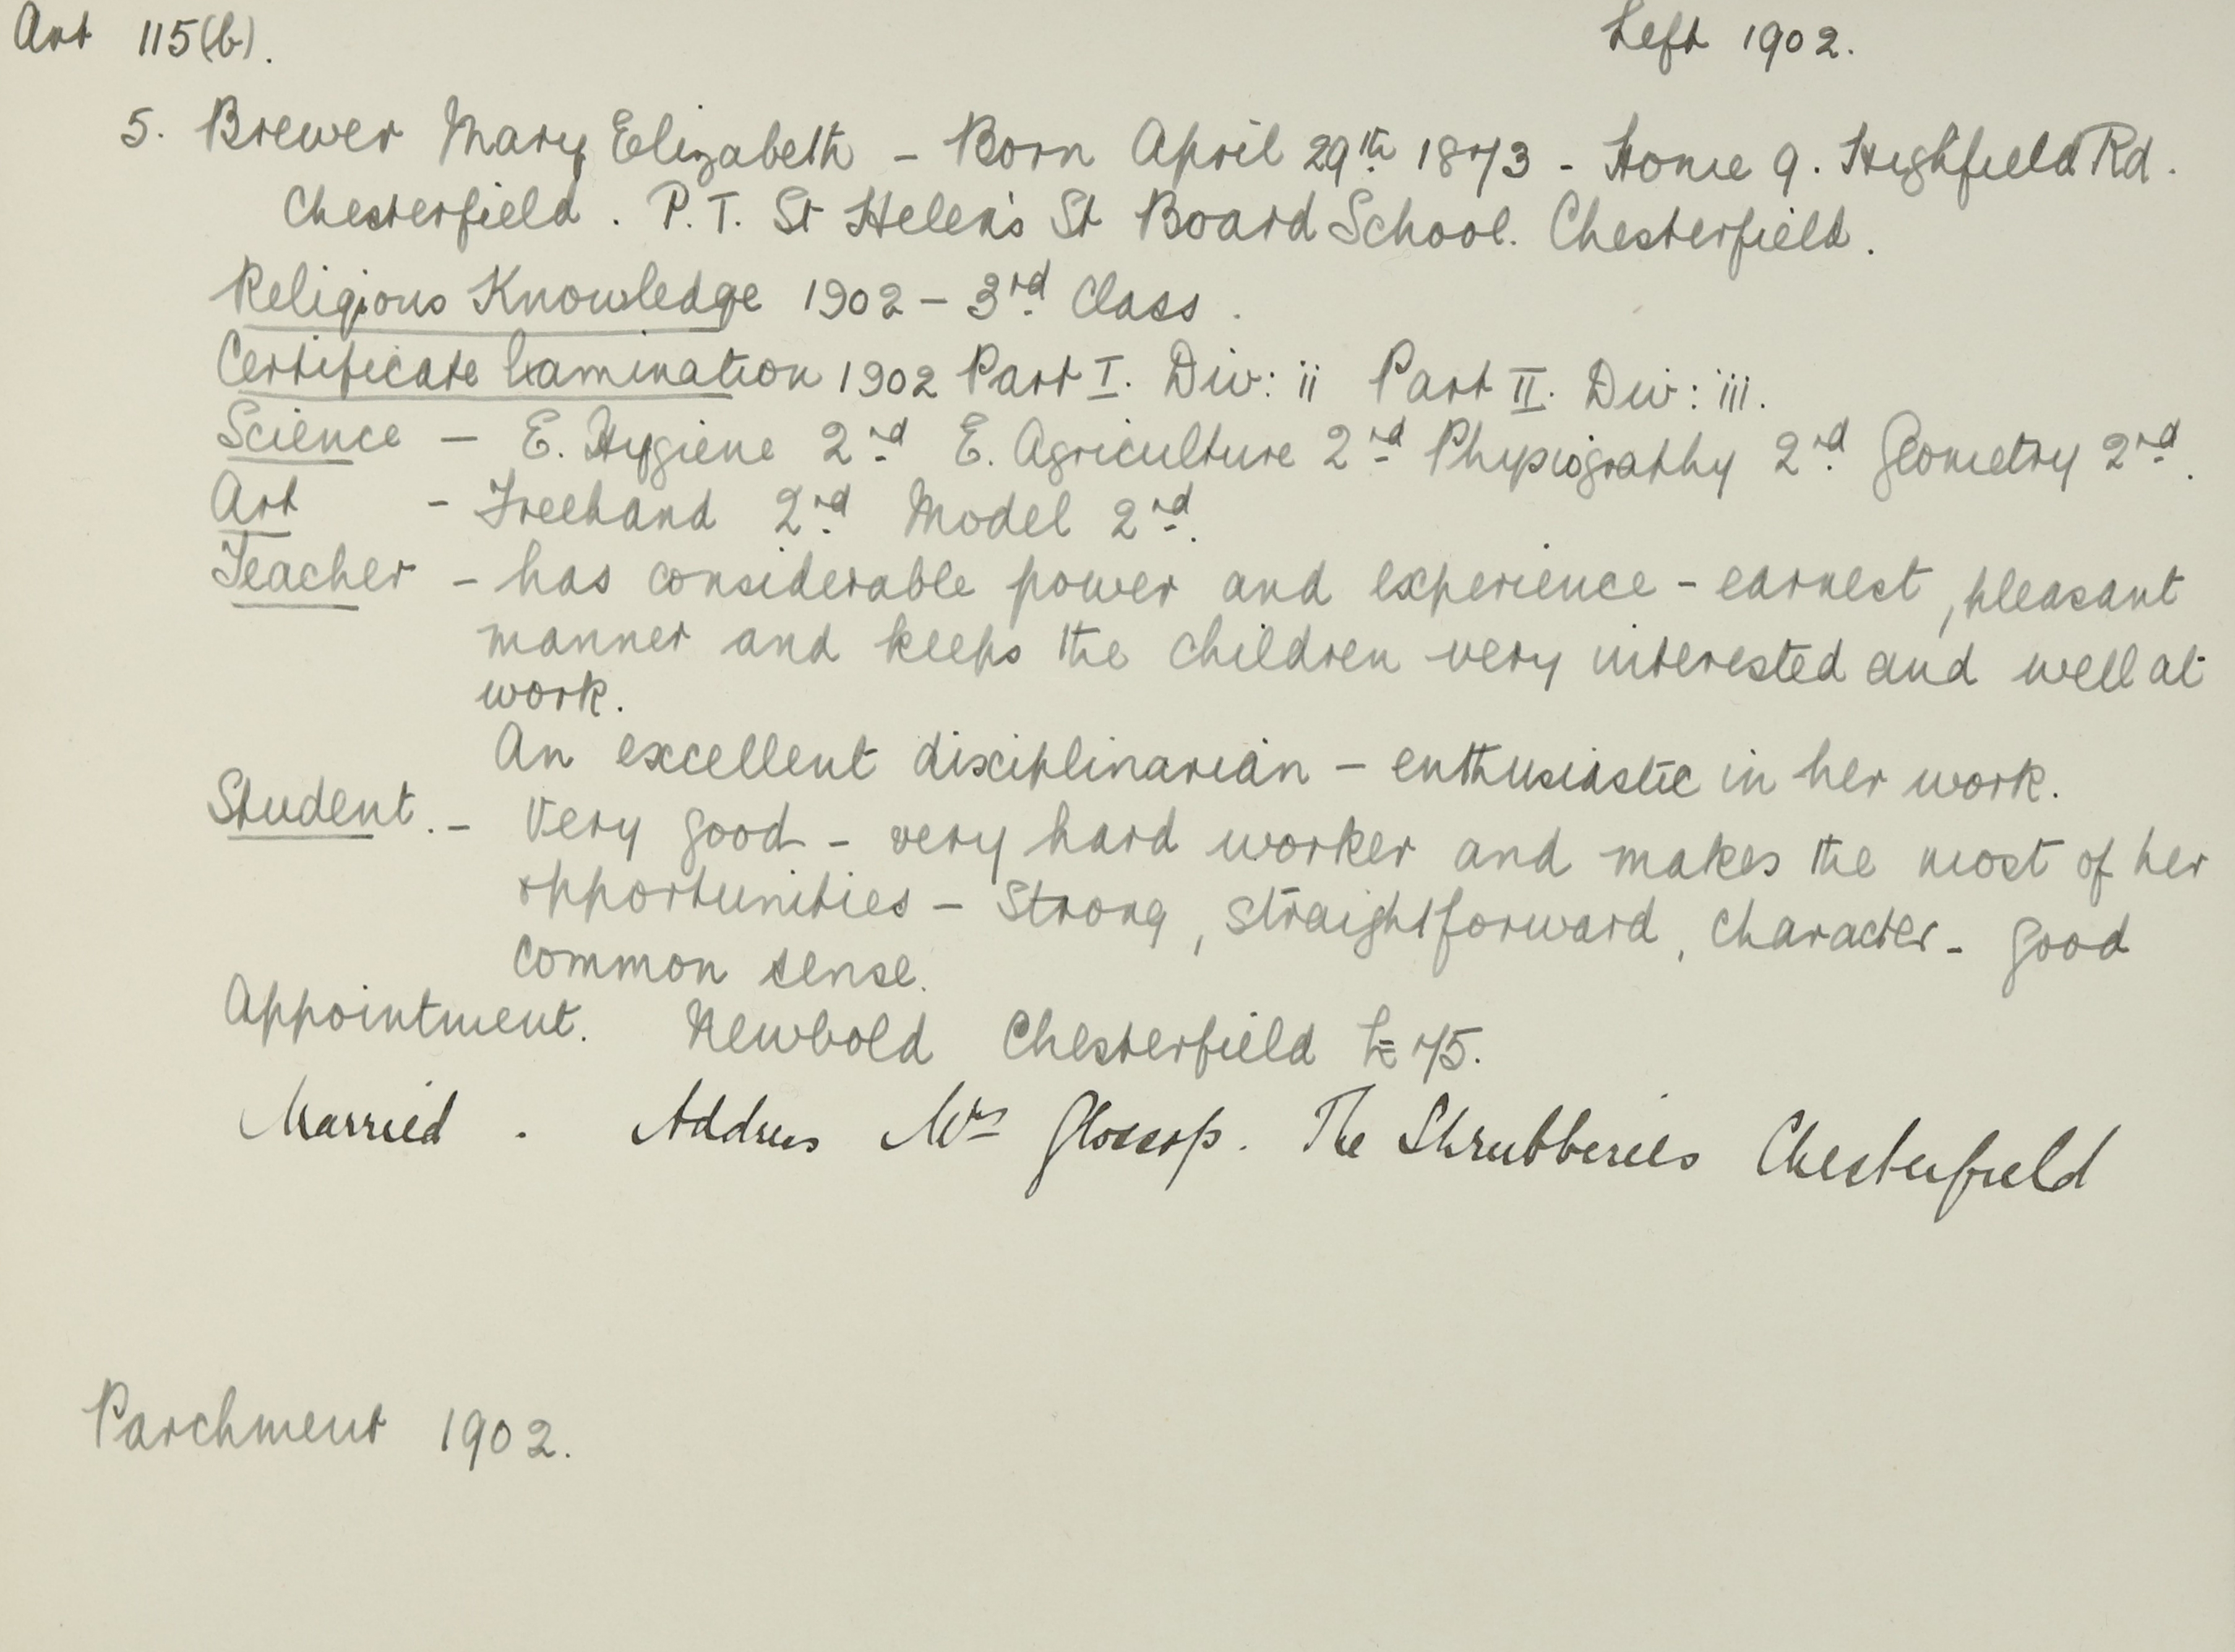 Art 115(b). Left 1902.
5. Brewer Mary Elizabeth - Born April 29th 1873 - Home 9. Highfield Rd.
Chesterfield. P.T. St Helen's St Board School. Chesterfield.
Religious Knowledge 1902 - 3rd Class.
Certificate Examination 1902 Part I. Div: ii Part II. Div: iii.
Science - E. Hygiene 2nd E. Agriculture 2nd Physiography 2nd Geometry 2nd.
Art - Freehand 2nd Model 2nd.
Teacher - has considerable power and experience - earnest, pleasant
manner and keeps the children very interested and well at
work.
An excellent disciplinarian - enthusiastic in her work.
Student. - Very good - very hard worker and makes the most of her
opportunities - Strong, straightforward, character - good
common sense.
Appointment. Newbold Chesterfield £75.
Married. Address Mrs Glossop. The Shrubberies Chesterfield
Parchment 1902.